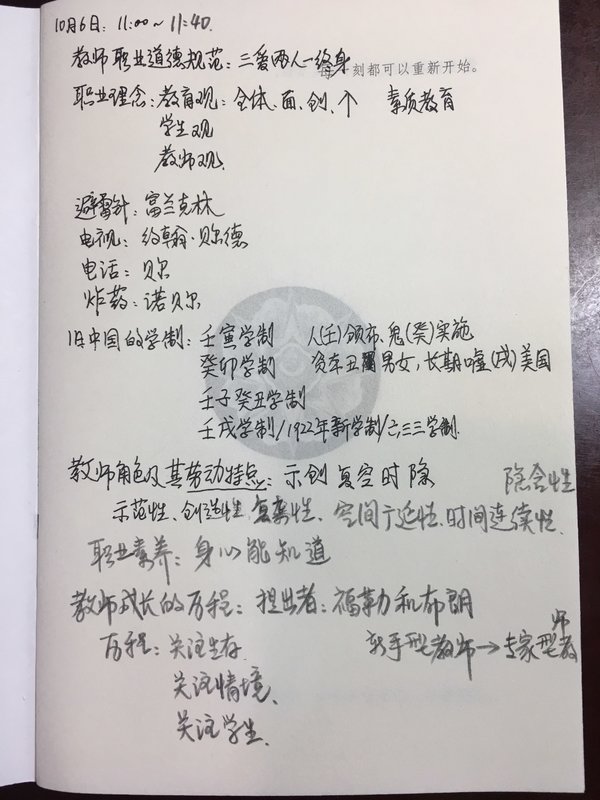 10月6日: 11:00~11:40.
教师职业道德规范: 三爱两人一终身
每一刻都可以重新开始。
职业理念: 教育观: 全体、面、创、个 素质教育
学生观
教师观.
避雷针: 富兰克林
电视: 约翰·贝尔德
电话: 贝尔
炸药: 诺贝尔
旧中国的学制: 壬寅学制 人(壬)颁布、鬼(癸)实施
癸卯学制 资本丑男女, 长期嘘(戌)美国
壬子癸丑学制
壬戌学制/1922年新学制/六三三学制.
教师角色及其劳动特点: 示创 复空时 隐 隐含性
示范性、创造性、复杂性、空间广延性、时间连续性.
职业素养: 身心能知道
教师成长的历程: 提出者: 福勒和布朗
历程: 关注生存. 新手型教师→专家型教师
关注情境.
关注学生.